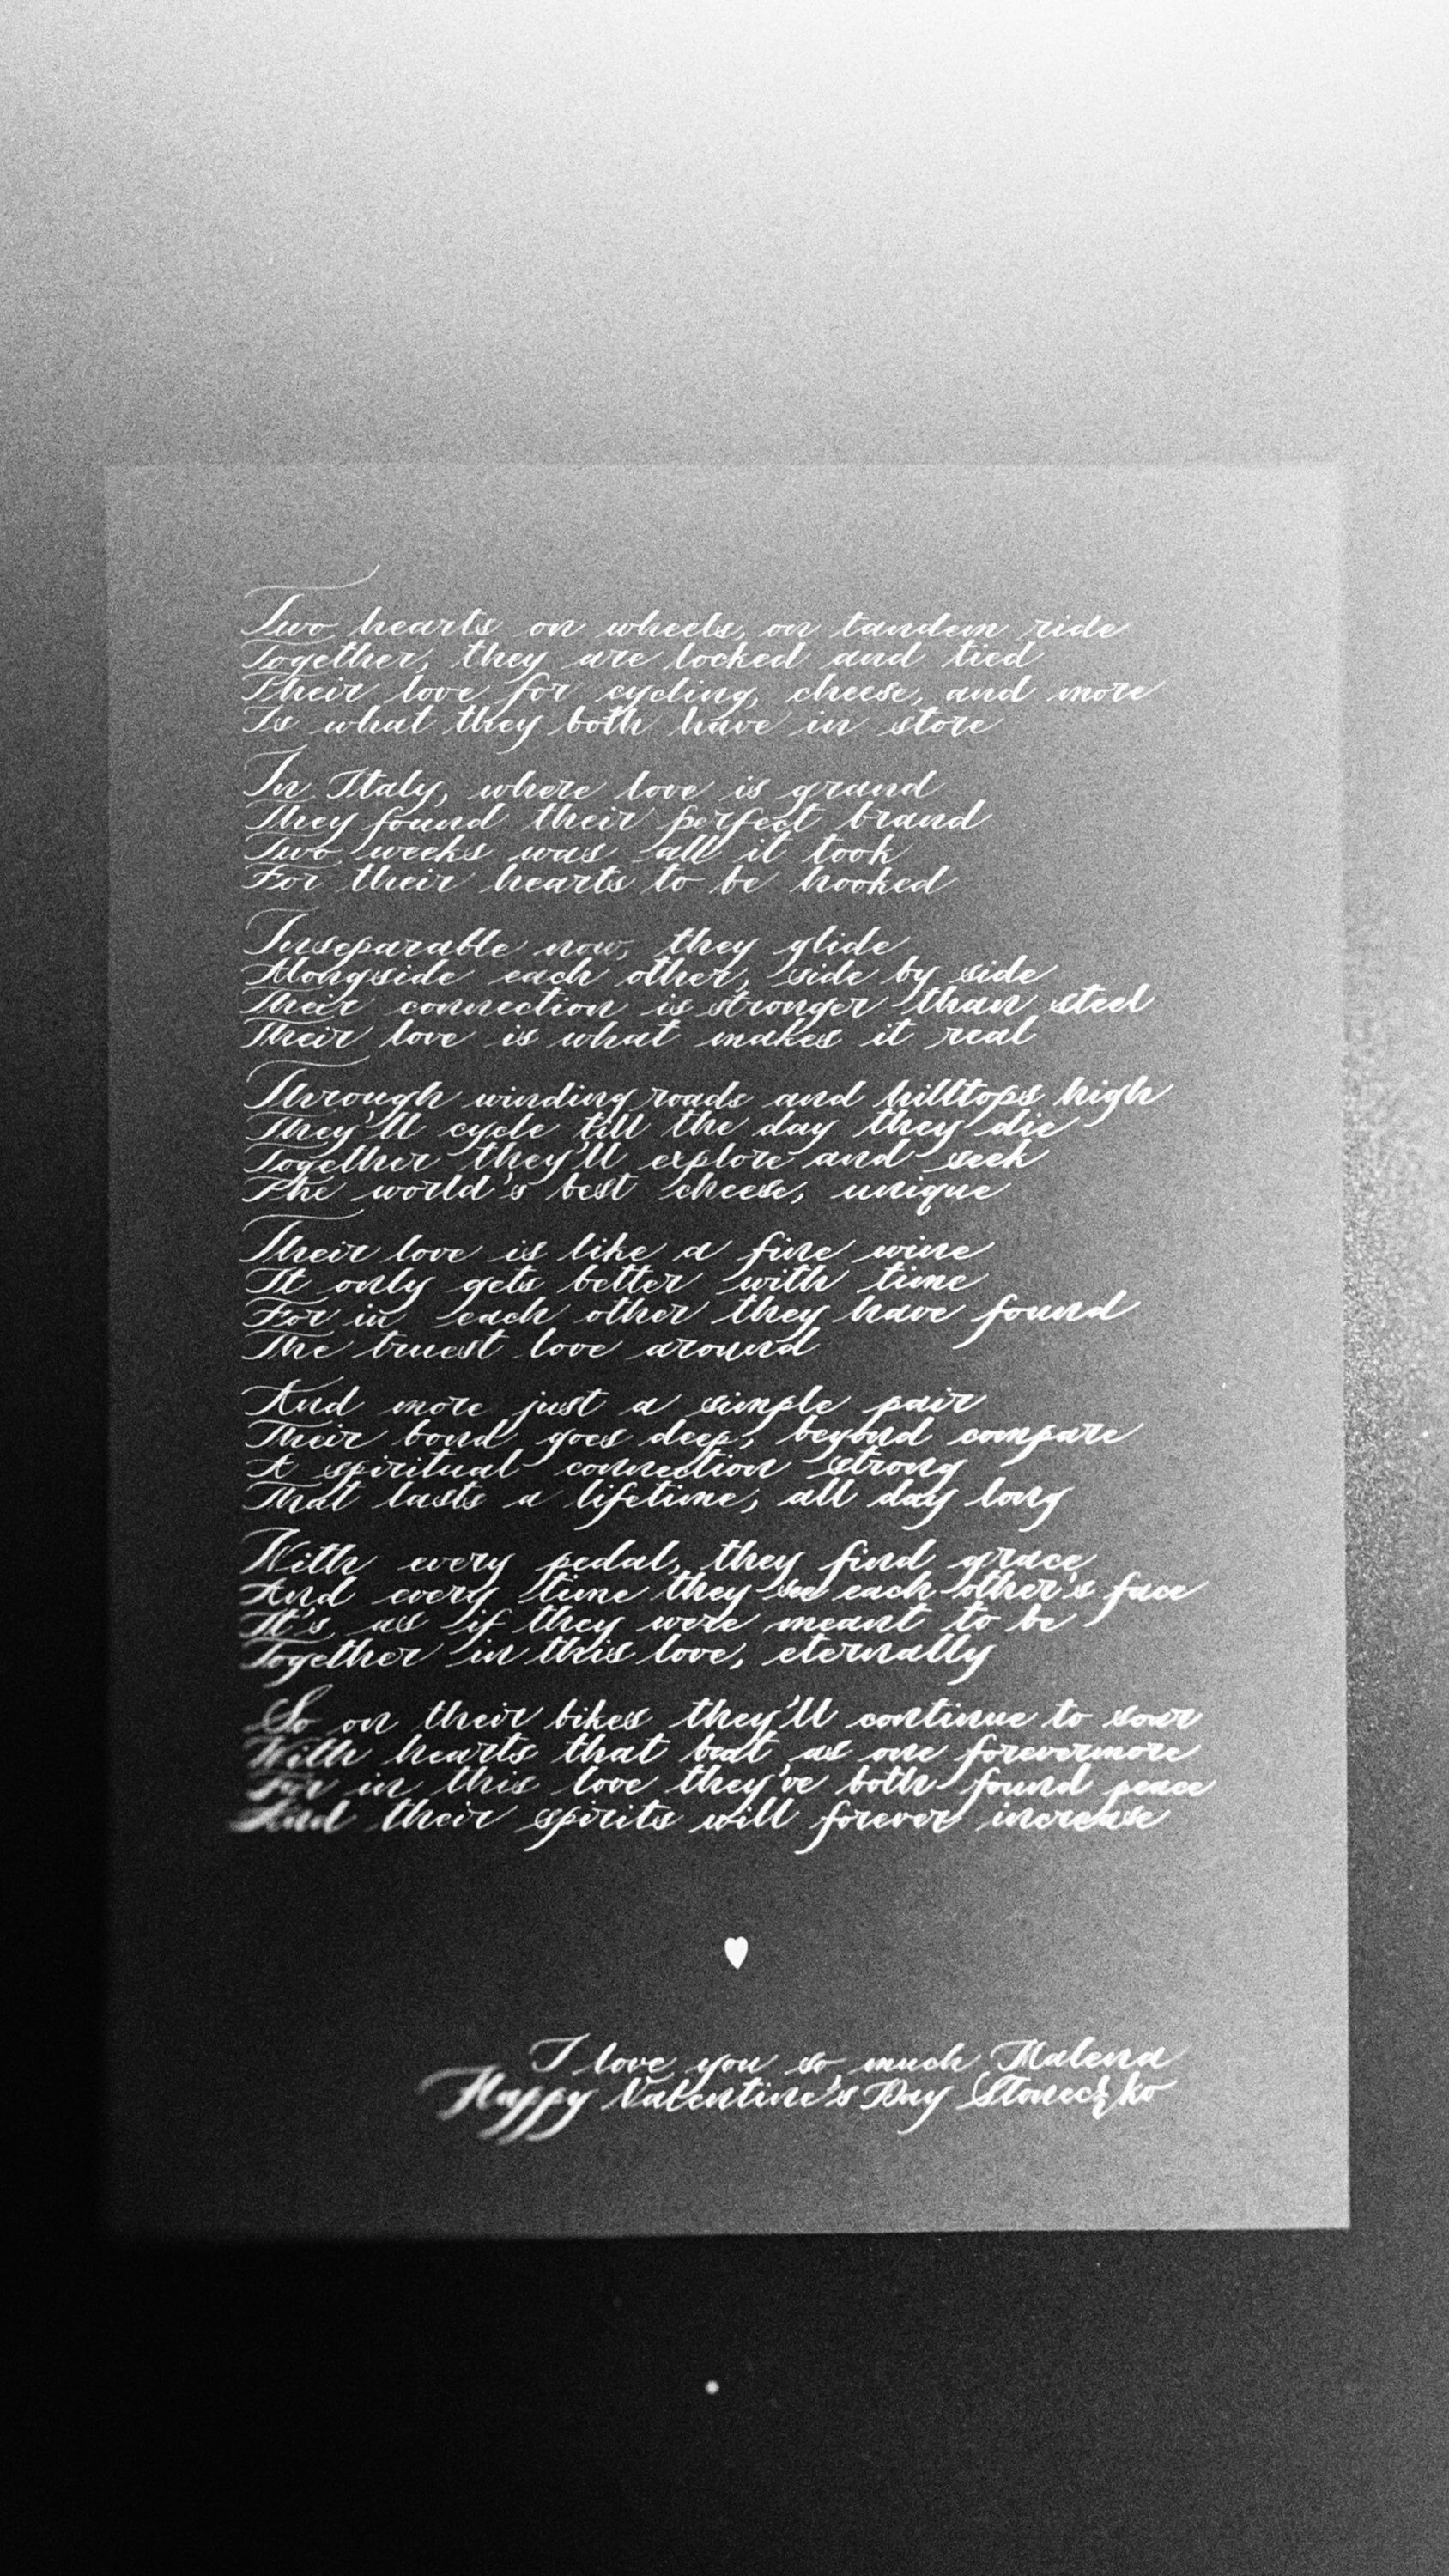 Two hearts on wheels, on tandem ride
Together, they are locked and tied
Their love for cycling, cheese, and more
Is what they both have in store
In Italy, where love is grand
They found their perfect brand
Two weeks was all it took
For their hearts to be hooked
Inseparable now, they glide
Alongside each other, side by side
Their connection is stronger than steel
Their love is what makes it real
Through winding roads and hilltops high
They'll cycle till the day they die
Together they'll explore and seek
The world's best cheese, unique
Their love is like a fine wine
It only gets better with time
For in each other they have found
The truest love around
And more just a simple pair
Their bond goes deep, beyond compare
A spiritual connection strong
That lasts a lifetime, all day long
With every pedal, they find grace
And every time they see each other's face
It's as if they were meant to be
Together in this love, eternally
So on their bikes they'll continue to soar
With hearts that beat as one forevermore
For in this love they've both found peace
And their spirits will forever increase
I love you so much Malena
Happy Valentine's Day Słoneczko